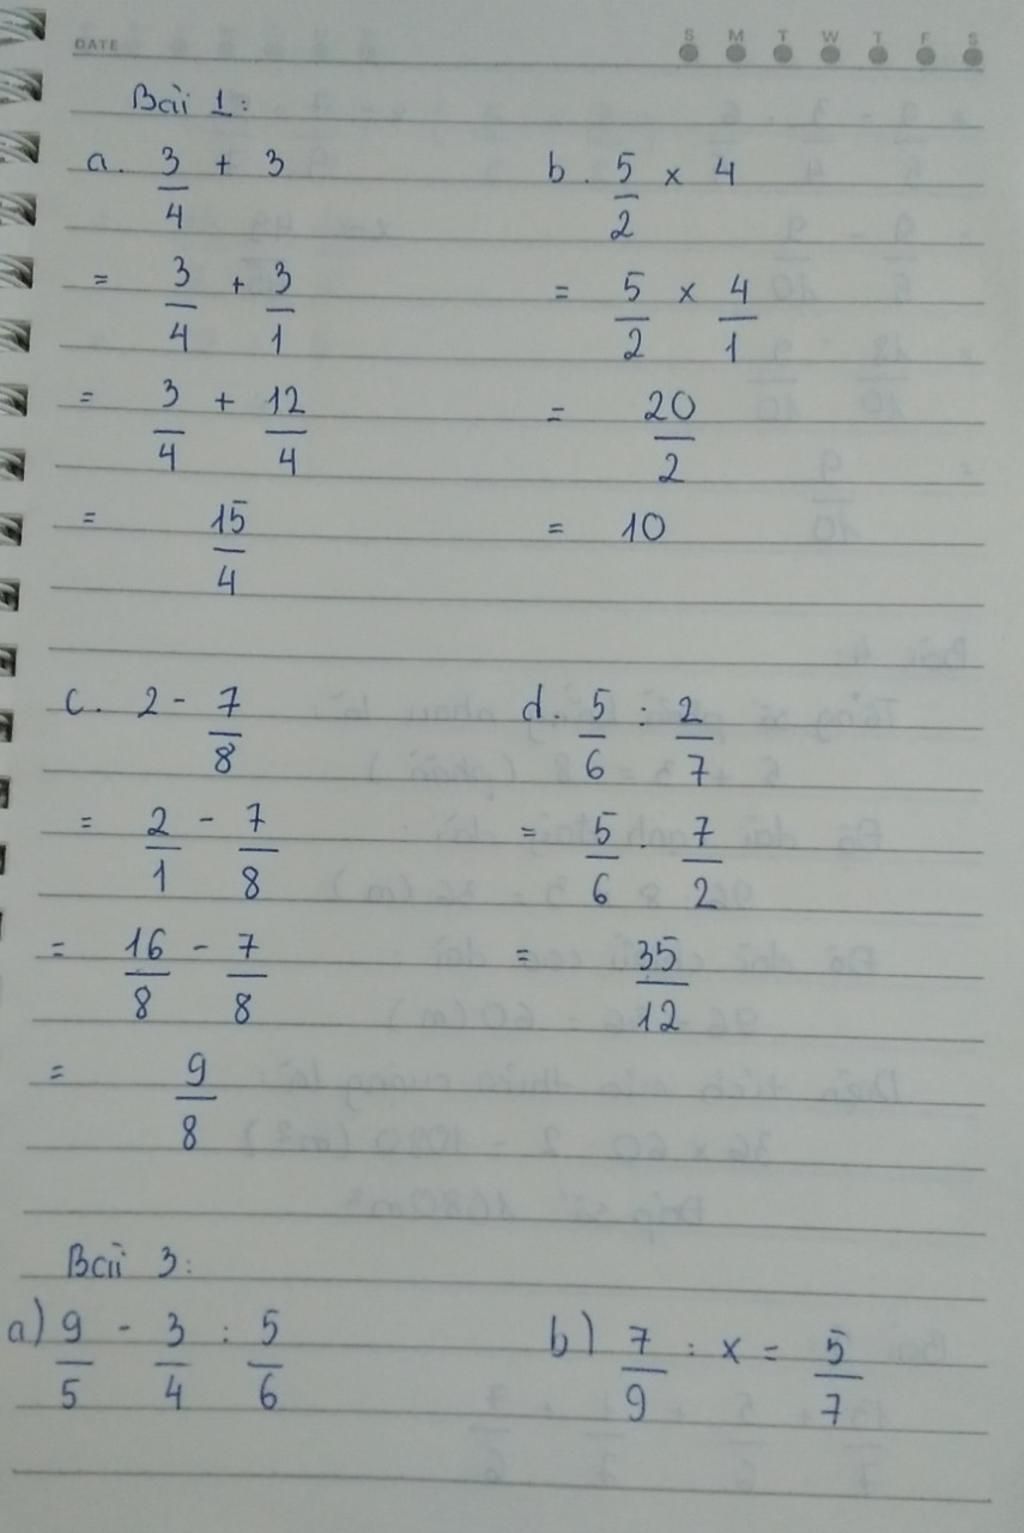 DATE S M T W T F S
Bài 1:
a. 3/4 + 3
= 3/4 + 3/1
= 3/4 + 12/4
= 15/4
b. 5/2 x 4
= 5/2 x 4/1
= 20/2
= 10
c. 2 - 7/8
= 2/1 - 7/8
= 16/8 - 7/8
= 9/8
d. 5/6 : 2/7
= 5/6 . 7/2
= 35/12
Bài 3:
a) 9/5 - 3/4 : 5/6
b) 7/9 : x = 5/7